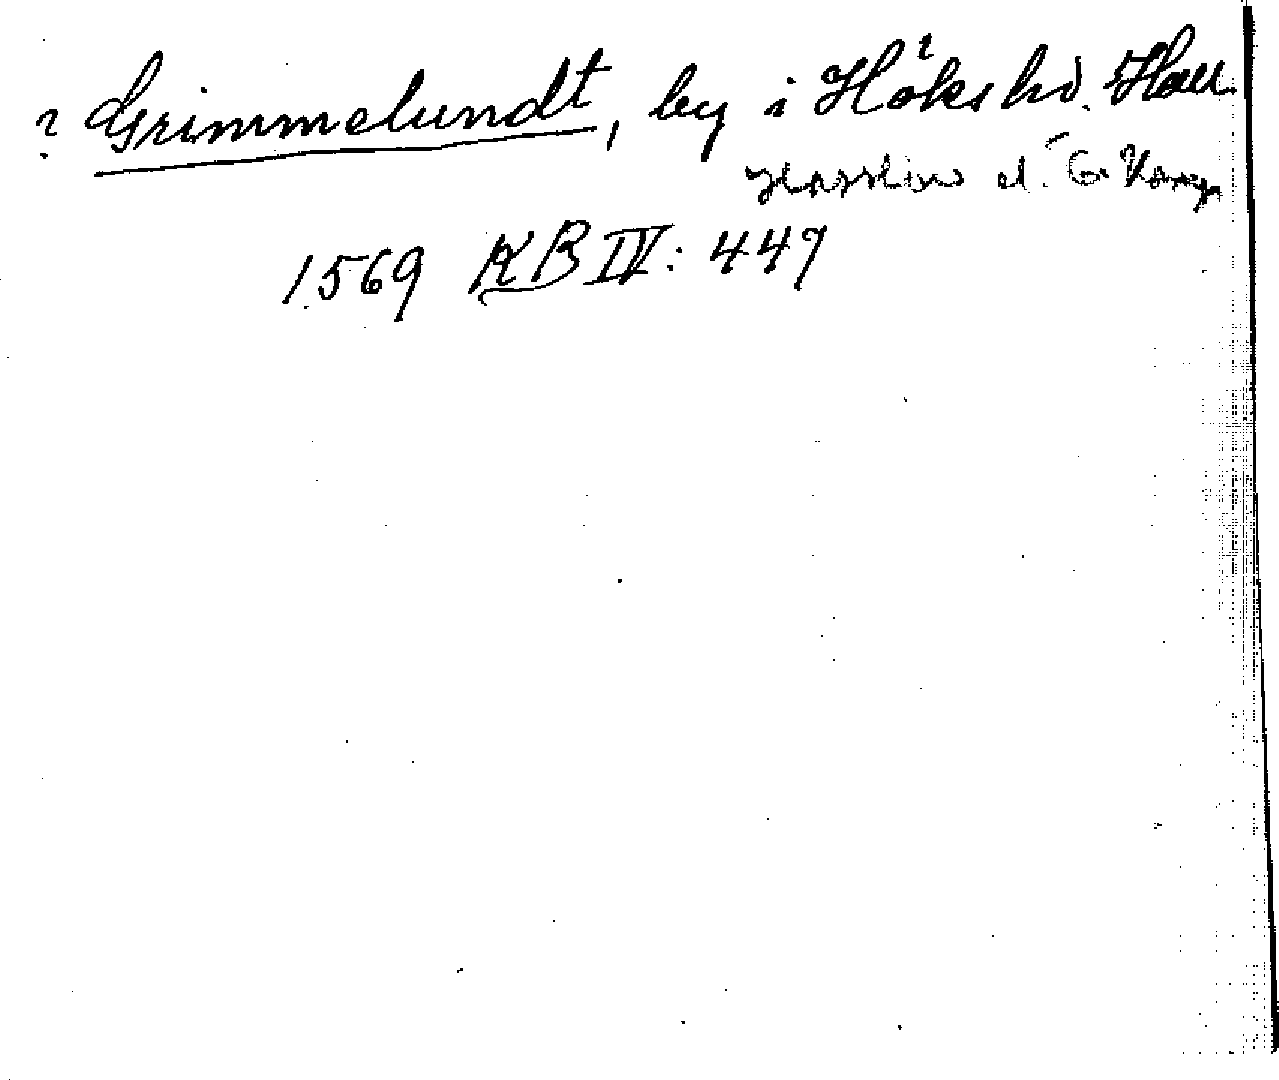 ? Grimmelundt, by i Höks hd. Hall.
Hasslöv el. Ö. Karup
1569 KB IV: 449